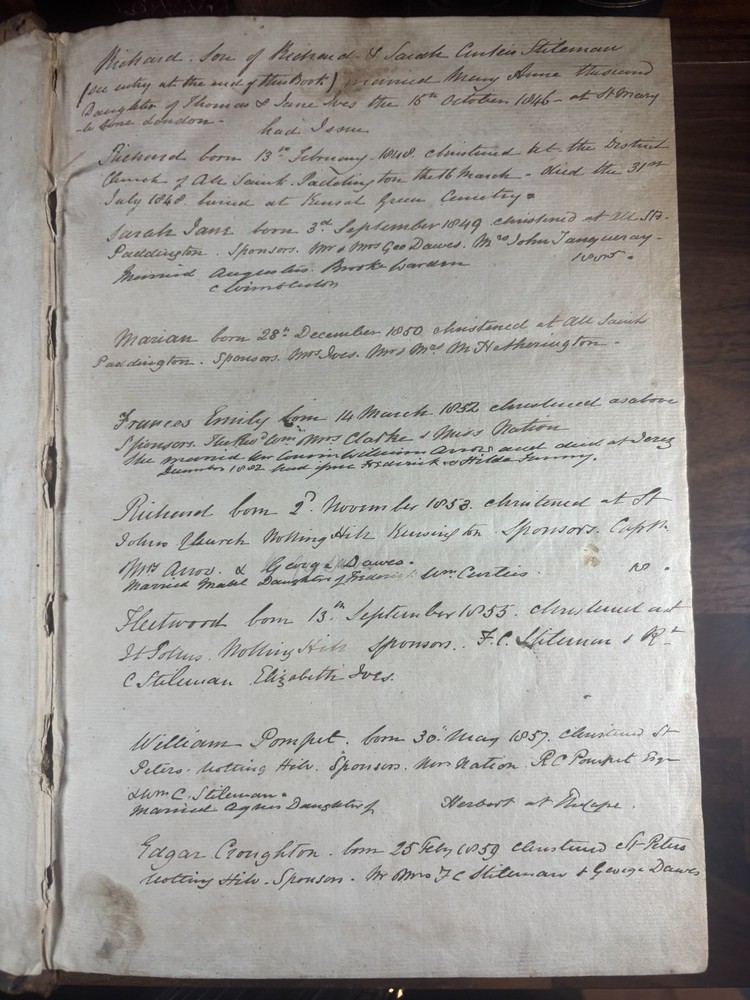 Richard. Son of Richard & Sarah Curtis Stileman
(see entry at the end of this Book) married Mary Anne the second
Daughter of Thomas & Jane Ives the 15th October 1846 - at St Mary
-le bone London -
had Issue
Richard born 13th February 1848. christened at the District
Church of All Saints. Paddington the 16 March - died the 31st
July 1848 buried at Kensal Green Cemetry =
Sarah Jane born 3rd September 1849 christened at All Sts -
Paddington. Sponsors. Mr & Mrs Geo Dawes. Mrs John Tanqueray -
Married Augustus. Brooke Warden 1885.
Wimbledon
Marian born 28th December 1850 christened at All Saints
Paddington. Sponsors. Mrs Ives. Mr & Mrs M Hetherington -
Frances Emily born 14 March 1852 christened as above
Sponsors. Wm Mrs Clarke & Miss Nation
She married her Cousin William Arrow and died at
December 1882 had Frederick & Hilda
Richard born 2d. November 1853. christened at St
Johns Church Notting Hill Kensington - Sponsors. Captn
Mrs Arrow. & George Dawes.
Married Mabel Daughter of Frederick Wm. Curteis. 18
Fleetwood born 13th September 1855. christened at
St Johns. Notting Hill Sponsors. F. C. Stileman & Rd
C Stileman Elizabeth Ives.
William Pomfret. born 30 May 1857. Christened St
Peters. Notting Hill. Sponsors. Mrs Nation. R C Pomfret Esqr
& Wm C. Stileman =
Married Agnes Daughter of Herbert at
Edgar Croughton. born 25 Feby 1859 christened St Peters
Notting Hill. Sponsors. Mr Mrs F C Stileman & George Dawes